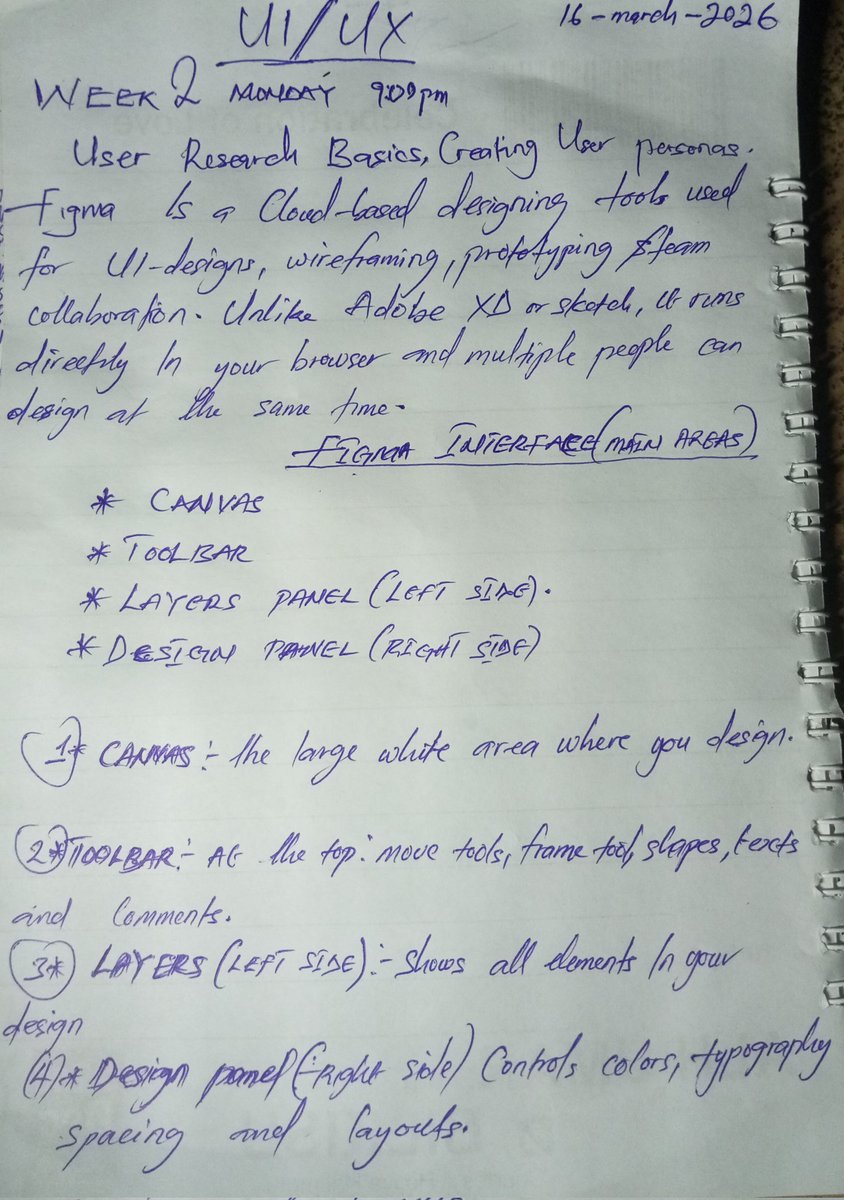 UI/UX 16-march-2026
WEEK 2 MONDAY 9:00pm
User Research Basics, Creating User personas.
Figma Is a Cloud-based designing tools used
for UI-designs, wireframing, prototyping & team
collaboration. Unlike Adobe XD or sketch, it runs
directly In your browser and multiple people can
design at the same time.
FIGMA INTERFACE (MAIN AREAS)
* CANVAS
* TOOLBAR
* LAYERS PANEL (LEFT SIDE).
* DESIGN PANEL (RIGHT SIDE)
1* CANVAS:- the large white area where you design.
2* TOOLBAR:- At the top: move tools, frame tool, shapes, texts
and Comments.
3* LAYERS (LEFT SIDE):- Shows all elements In your
design
(4)* Design panel (:-right side) Controls colors, typography
spacing and layouts.